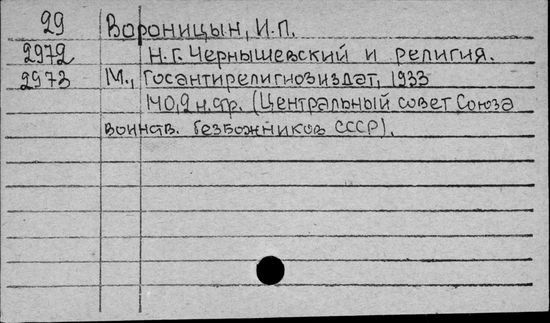 29 Вороницын, И.П.
2972 Н.Г. Чернышевский и религия.
2973 М., Госантирелигиозиздат, 1933
140,2 н.фр. (Центральный совет Союза
воинств. безбожников СССР).